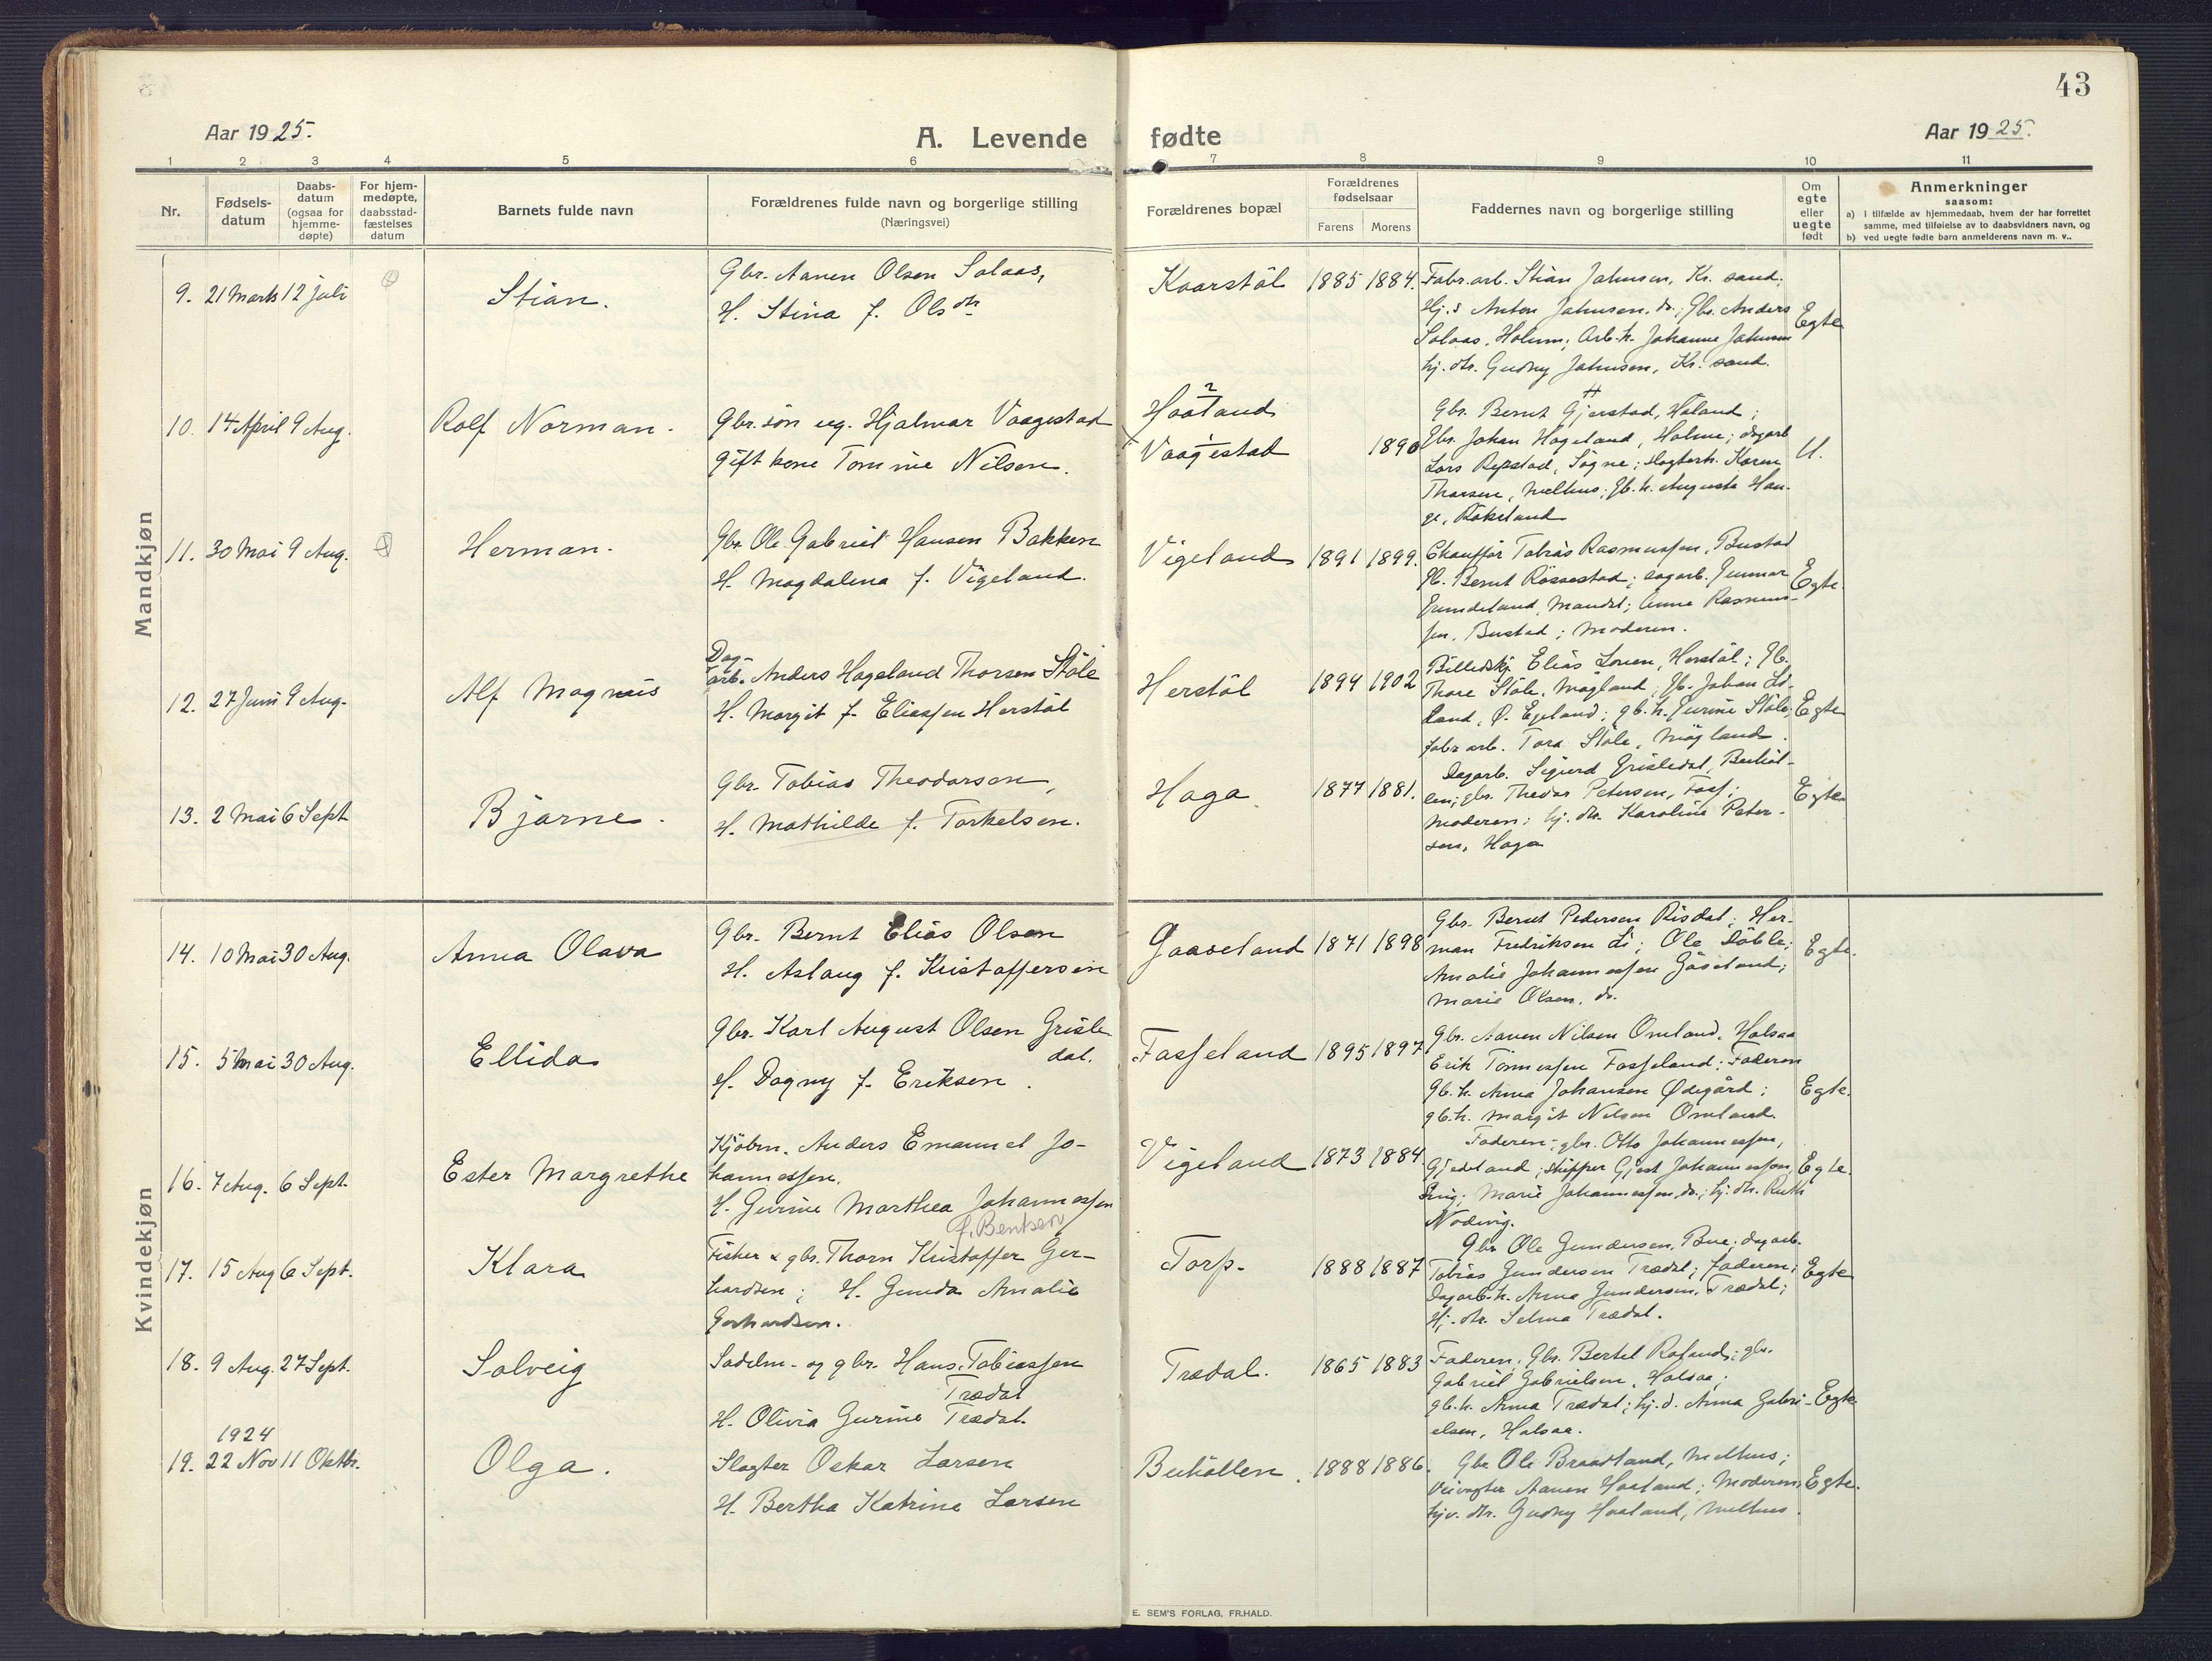 43
Aar 1925.
A. Levende fødte
Aar 1925.
1 2 3 4 5 6 7 8 9 10 11
Nr.
Fødsels-
datum
Daabs-
datum
(ogsaa for
hjemme-
døpte)
For hjem-
medøpte,
daabsstad-
fæstelses
datum
Barnets fulde navn
Forældrenes fulde navn og borgerlige stilling
(Næringsvei)
Forældrenes bopæl
Forældrenes
fødselsaar
Farens Morens
Faddernes navn og borgerlige stilling
Om
egte
eller
uegte
født
Anmerkninger
saasom:
a) i tilfælde av hjemmedaab, hvem der har forrettet
samme, med tilføielse av to daabsvidners navn, og
b) ved uegte fødte barn anmelderens navn m. v..
Mandkjøn
9. 21 Marts 12 Juli
Stian.
Gbr. Aanen Olsen Solaas,
H. Stina f. Olsdtr
Kaarstöl 1885 1884.
Fabr.arb. Stian Jahnsen, Kr. sand;
Hj.s Anton Jahnsen, do.; Gbr. Anders
Solaas, Holum; Arb.h. Johanne Jahnsen
hj. dtr. Gudny Jahnsen, Kr. sand.
Egte
10. 14 April 9 Aug.
Rolf Norman.
Gbr.sön ug. Hjalmar Vaagestad
gift kone Tomine Nilsen.
2
Haaland
1
Vaagestad 1890
Gbr. Bernt Gjerstad, Håland;
Gbr. Johan Hageland, Holme; dagarb
Lars Repstad, Sögne; slagterh. Karen
Thorsen, Melhus; gb.h. Augusta Hau-
ge, Kokeland
U.
11. 30 Mai 9 Aug.
Herman.
Gbr. Ole Gabriel Hansen Bakken
H. Magdalena f. Vigeland.
Vigeland 1891 1899.
Chauffør Tobias Rasmussen, Bustad
Gb. Bernt Røssestad; dagarb. Gunnar
Grundeland, Mandal; Anna Rasmus-
sen, Bustad; Moderen.
Egte.
12. 27 Juni 9 Aug.
Alf Magnus
Dag-
arb. Anders Hageland Thorsen Ståle
H. Margit f. Eliassen Herstöl
Herstöl 1894 1902
Billedskj. Elias Lonen, Herstöl; Gb.
Thore Ståle, Mögland; Gb. Johan
land, Ø. Egeland; gb.h. Gurine Ståle;
fabr arb. Tora Ståle, Mögland.
Egte
13. 2 Mai 6 Sept
Bjarne.
Gbr. Tobias Theodorsen,
H. Mathilde f. Torkelsen.
Haga 1877 1881.
Dagarb. Sigurd Grisledal, Buhöl-
len; gbr. Thedor Petersen, Foss;
Moderen; hj. dtr. Karoline Peter-
sen, Haga
Egte
Kvindekjøn
14. 10 Mai 30 Aug.
Anna Olava
Gbr. Bernt Elias Olsen
H. Aslaug f. Kristoffersen
Gaaseland 1871 1898
Gbr. Bernt Pedersen Risdal; Her-
man Fredriksen Li; Ole Döble;
Amalie Johannessen Gåseland;
Marie Olsen, do.
Egte.
15. 5 Mai 30 Aug.
Ellida
Gbr. Karl August Olsen Grisle
dal.
H. Dagny f. Eriksen.
Fasseland 1895 1897
Gbr. Aanen Nilsen Omland, Halsaa
Erik Tönnessen Fasseland; Faderen
gb.h. Anna Johansen Ødegård;
gb.h. Margit Nilsen Omland.
Egte.
16. 7 Aug. 6 Sept.
Ester Margrethe
Kjöbm. Anders Emanuel Jo-
hannessen.
H. Gurine Marthea Johannessen
f. Bentsen
Vigeland 1873 1884
Faderen; gbr. Otto Johannessen,
Gjedeland; skipper Gjest Johannessen,
Snig; Marie Johannessen, do.; hj. dtr. Ruth
Nodevig.
Egte.
17. 15 Aug 6 Sept.
Klara
Fisker & gbr. Thorn Kristoffer Ger-
hardsen; H. Gunda Amalie
Gerhardsen.
Torp. 1888 1887
Gbr Ole Gundersen, Bue; dagarb.
Tobias Gundersen Trædal; Faderen;
Dagarb.h. Anna Gundersen, Trædal;
Hj. dtr. Selma Trædal.
Egte
18. 9 Aug. 27 Sept.
Solveig
Sadelm- og gbr. Hans Tobiassen
Trædal
H. Olivia Gurine Trædal.
Trædal. 1865 1883
Faderen; Gbr. Bertel Roland; gbr.
Gabriel Gabrielsen, Halsaa;
gb.h. Anna Trædal; hj.d. Anna Gabri-
elsen, Halsaa.
Egte
1924
19. 22 Nov 11 Oktbr.
Olga.
Slagter Oskar Larsen
H. Bertha Katrine Larsen
Buhöllen. 1888 1886.
Gbr Ole Braadland, Melhus;
Veivogter Aanen Haaland; Moderen;
hjv. dtr. Gudny Haaland, Melhus.
Egte.
E. SEM'S FORLAG, FR.HALD.